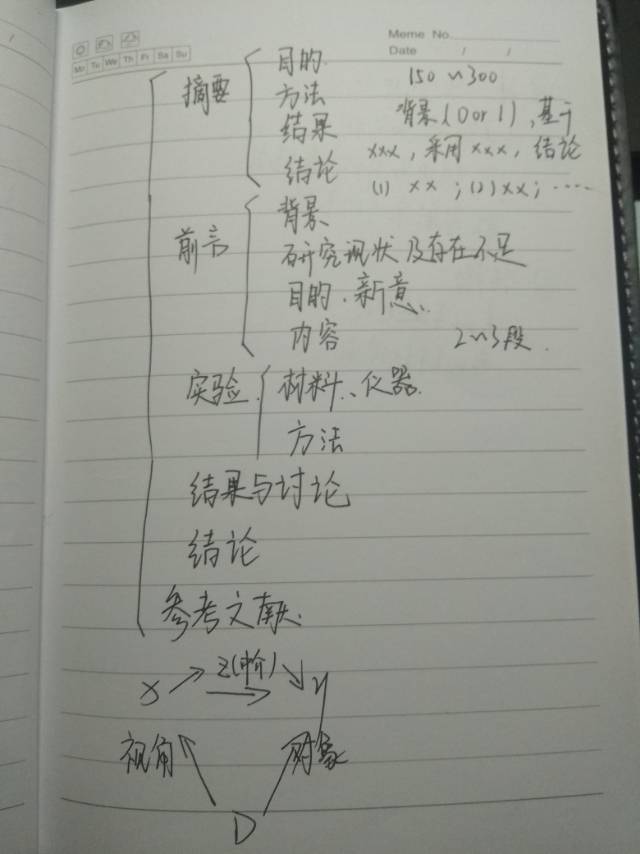 Meme No.
Date / /
Mo Tu We Th Fr Sa Su
摘要
目的
方法
结果
结论
150~300
背景(0 or 1),基于
xxx,采用xxx,结论
(1) xx ;(2)xx;……
前言
背景
研究现状及存在不足
目的、新意
内容 2~3段.
实验
材料、仪器
方法
结果与讨论
结论
参考文献
x Z(中介) y
视角 对象
D